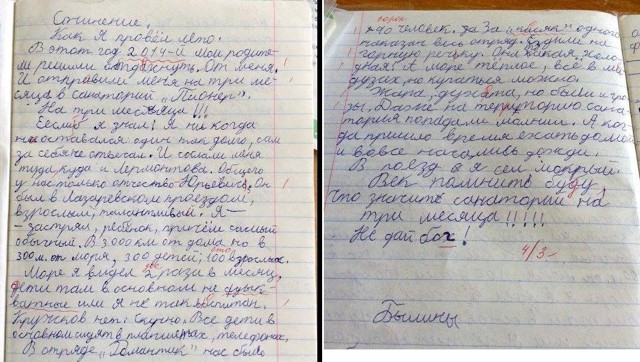 Сочинение.
Как я провёл лето.
В этот год 2014-й мои родите-
ли решили отдохнуть. От меня.
И отправили меня на три ме-
сяца в санаторий "Пионер".
На три месяца!!!
Если б я знал! Я ни когда
не оставался один так долго, сам
за себя не отвечал. И сослали меня
туда, куда и Лермонтова. Общего
у нас только отчество Юрьевичи. Он
был в Лазаревском проездом,
взрослый, талантливый. Я —
— застрял, ребёнок, причём самый
обычный. В 3000 км от дома, но в
300 м. от моря, 300 детей, 100 взрослых.
сто
Море я видел 2 раза в месяц,
две
дети там в основном не
или я не так воспитан.
Кружков нет. Скучно. Все дети в
основном сидят в планшетах, телефонах.
В отряде "Романтик" нас было
сорок
40 человек. За одного
наказан весь отряд. Ездили на
горную речку. Она
А море тёплое, всё в ме-
дузах, но купаться можно.
Жара, духота, но были и гро-
зы. Даже на территорию сана-
тория попадали молнии. А ког-
да пришло время ехать домой
и вовсе начались дожди.
В поезд я сел мокрый.
Век помнить буду,
что значит санаторий на
три месяца!!!!!
Не дай бох!
4/3-
Былины